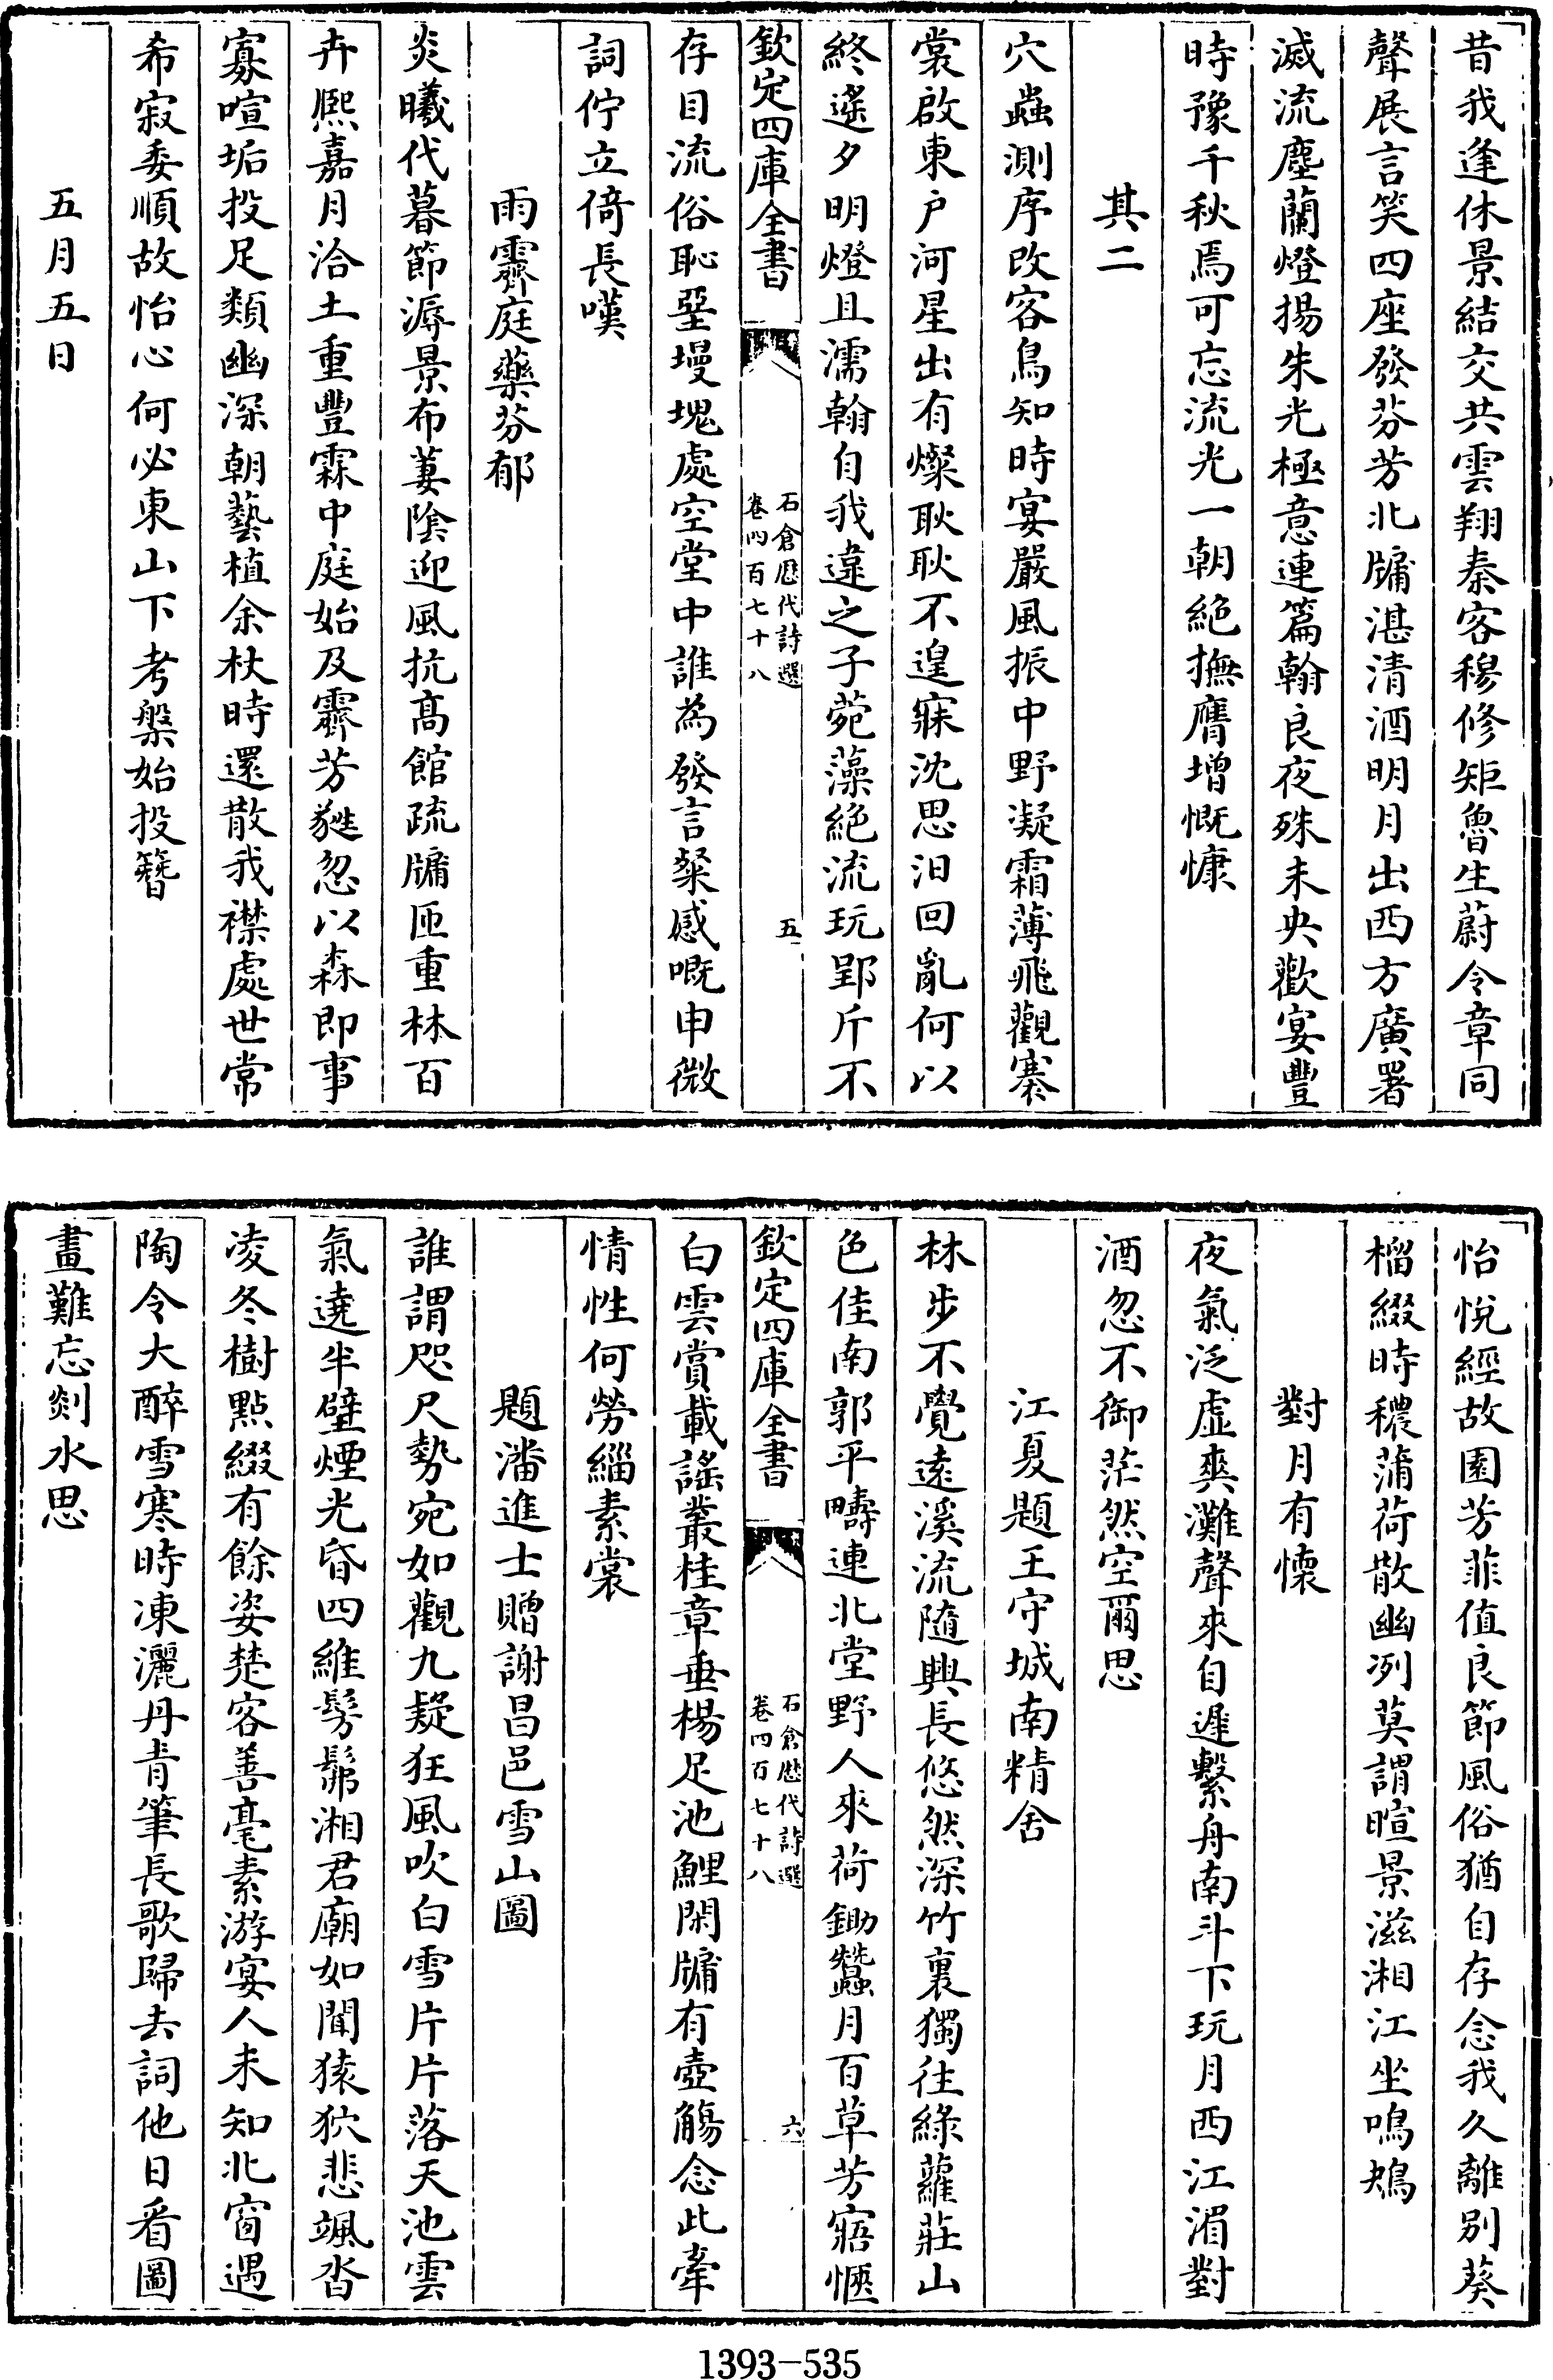 昔我逢休景結交共雲翔秦客穆修矩魯生蔚令章同
聲展言笑四座發芬芳北牖湛清酒明月出西方廣署
滅流塵蘭燈揚朱光極意連篇翰良夜殊未央歡宴豐
時豫千秋焉可忘流光一朝絶撫膺增慨慷
其二
穴蟲測序改客鳥知時宴嚴風振中野凝霜薄飛觀褰
裳啟東户河星出有燦耿耿不遑寐沈思汨回亂何以
終遙夕明燈且濡翰自我違之子菀藻絶流玩郢斤不
欽定四庫全書
石倉歴代詩選
卷四百七十八
五
存目流俗恥堊墁塊處空堂中誰為發言粲感嘅申微
詞佇立倚長嘆
雨霽庭藥芬郁
炎曦代暮節溽景布蔞陰迎風抗高館疏牖匝重林百
卉熈嘉月洽土重豐霖中庭始及霽芳蕤忽以森即事
寡喧垢投足類幽深朝藝植余杖時還散我襟處世常
希寂委順故怡心何必東山下考槃始投簪
五月五日
怡悅經故園芳菲值良節風俗猶自存念我久離别葵
榴綴時穠蒲荷散幽冽莫謂暄景滋湘江坐鳴鴂
對月有懷
夜氣泛虚爽灘聲來自遲繫舟南斗下玩月西江湄對
酒忽不御茫然空爾思
江夏題王守城南精舍
林步不覺遠溪流隨興長悠然深竹裏獨往綠蘿莊山
色佳南郭平疇連北堂野人來荷鋤蠶月百草芳寤愜
欽定四庫全書
石倉歴代詩選
卷四百七十八
六
白雲賞載謠叢桂章垂楊足池鯉閑牖有壺觴念此牽
情性何勞緇素裳
題潘進士贈謝昌邑雪山圖
誰謂咫尺勢宛如觀九疑狂風吹白雪片片落天池雲
氣遶半壁煙光昏四維髣髴湘君廟如聞猿狖悲颯沓
凌冬樹點綴有餘姿楚客善毫素游宴人未知北窗遇
陶令大醉雪寒時凍灑丹青筆長歌歸去詞他日看圖
畫難忘剡水思
1393-535